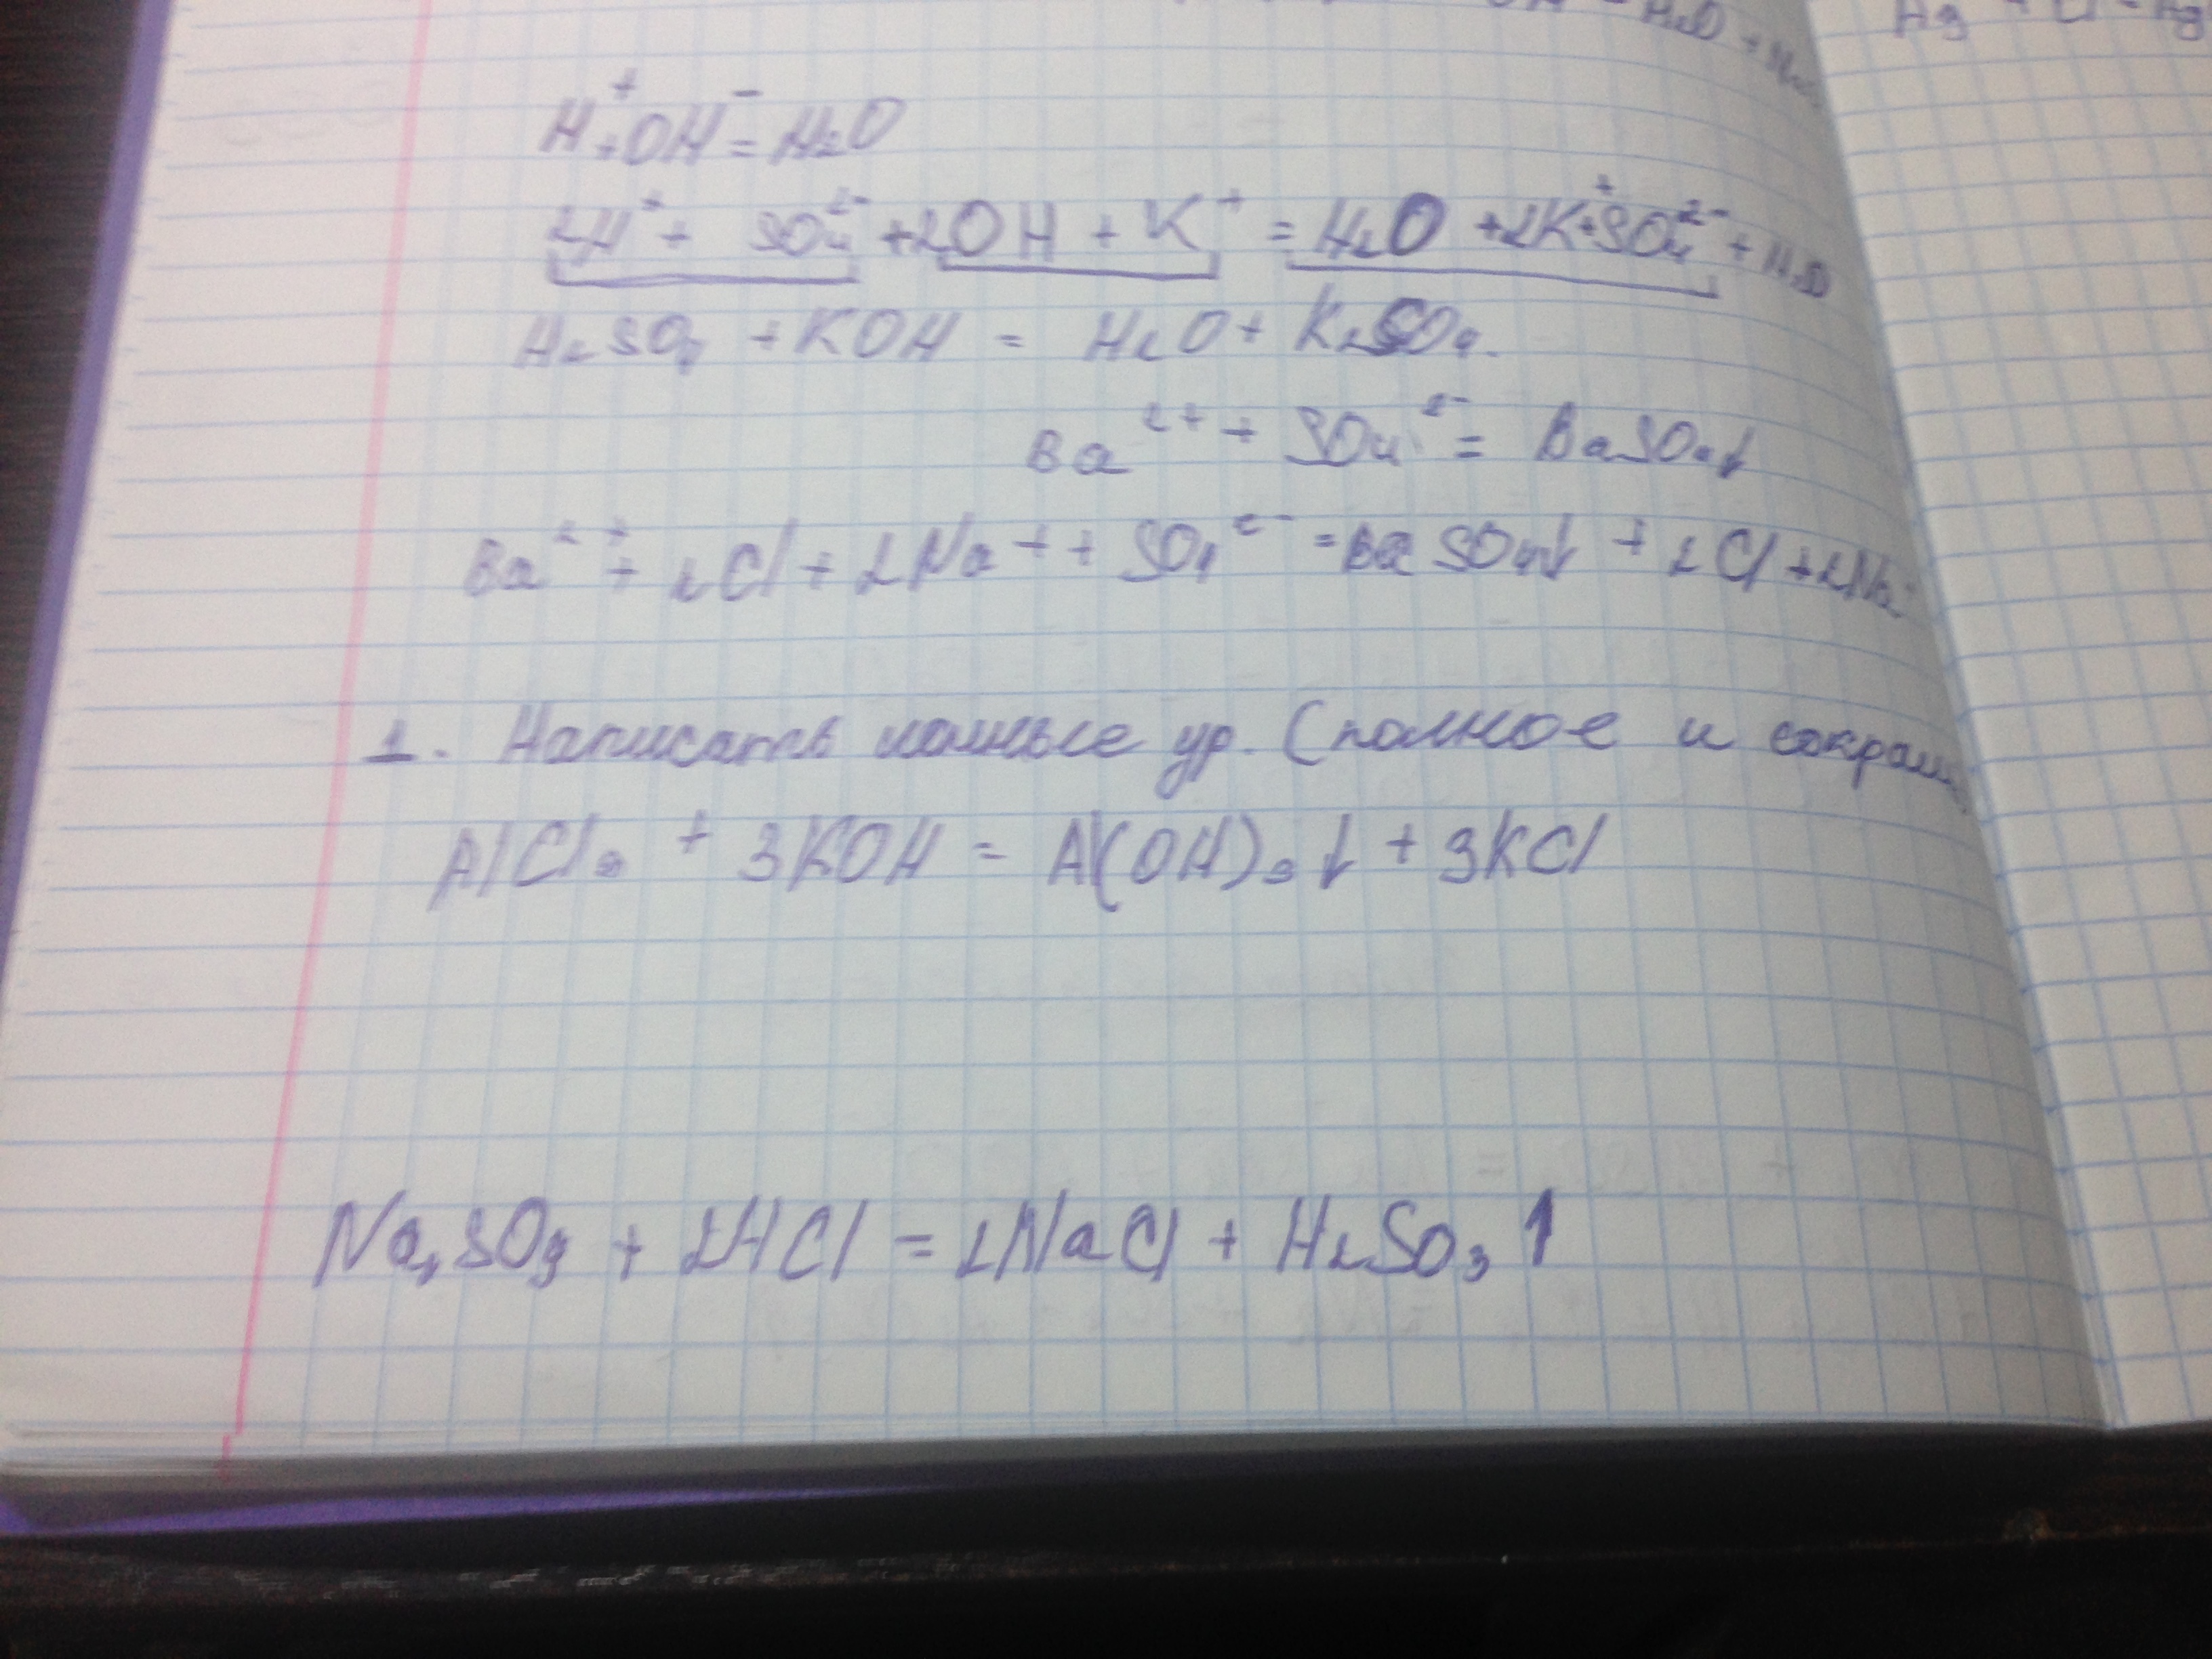 H⁺ + OH⁻ = H₂O
2H⁺ + SO₄²⁻ + 2OH + K⁺ = H₂O + 2K⁺ + SO₄²⁻ + H₂O
H₂SO₄ + KOH = H₂O + K₂SO₄.
Ba²⁺ + SO₄²⁻ = BaSO₄↓
Ba²⁺ + 2Cl + 2Na⁺ + SO₄²⁻ = BaSO₄↓ + 2Cl + 2Na⁺
1. Написать ионные ур. (полное и сокращ.
AlCl₃ + 3KOH = Al(OH)₃↓ + 3KCl
Na₂SO₃ + 2HCl = 2NaCl + H₂SO₃↑